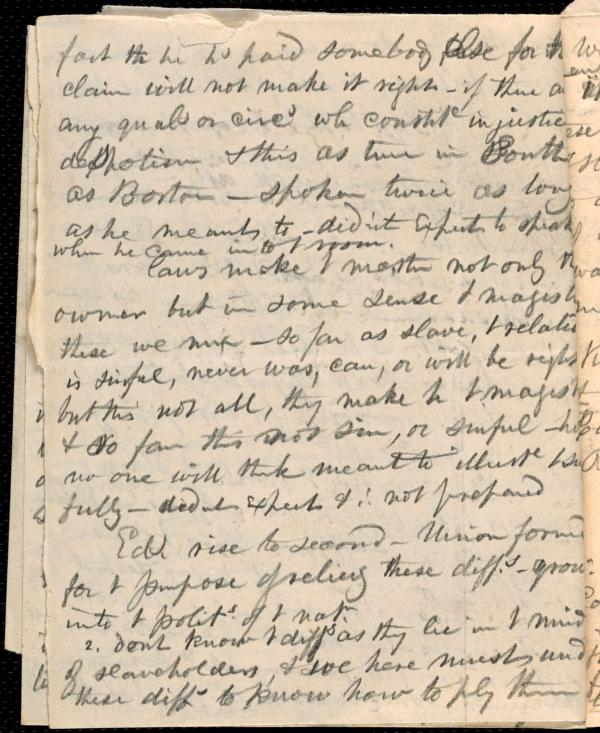 fact th he hs paid somebody else for th
claim will not make it right - if there a
any quals or circs wh constite injustice
despotism & this as true in South
as Boston - spoken twice as long
as he meant to - didn't expect to speak
when he came into t room.
Laws make t master not only th
owner but in some sense t magist
these we mix - so far as slave, t relatio
is sinful, never was, can, or will be right
but this not all, they make h t magist
& so far this not sin, or sinful -
no one will think meant to illuste t su
fully - didnt expect & not prepared
rise to second - Union forme
for t purpose of reliev these diffs - grow
into t polits of t natn
2. dont know t diffs as they lie in t mind
of slaveholders, & we here must und
these diffs to know how to ply them